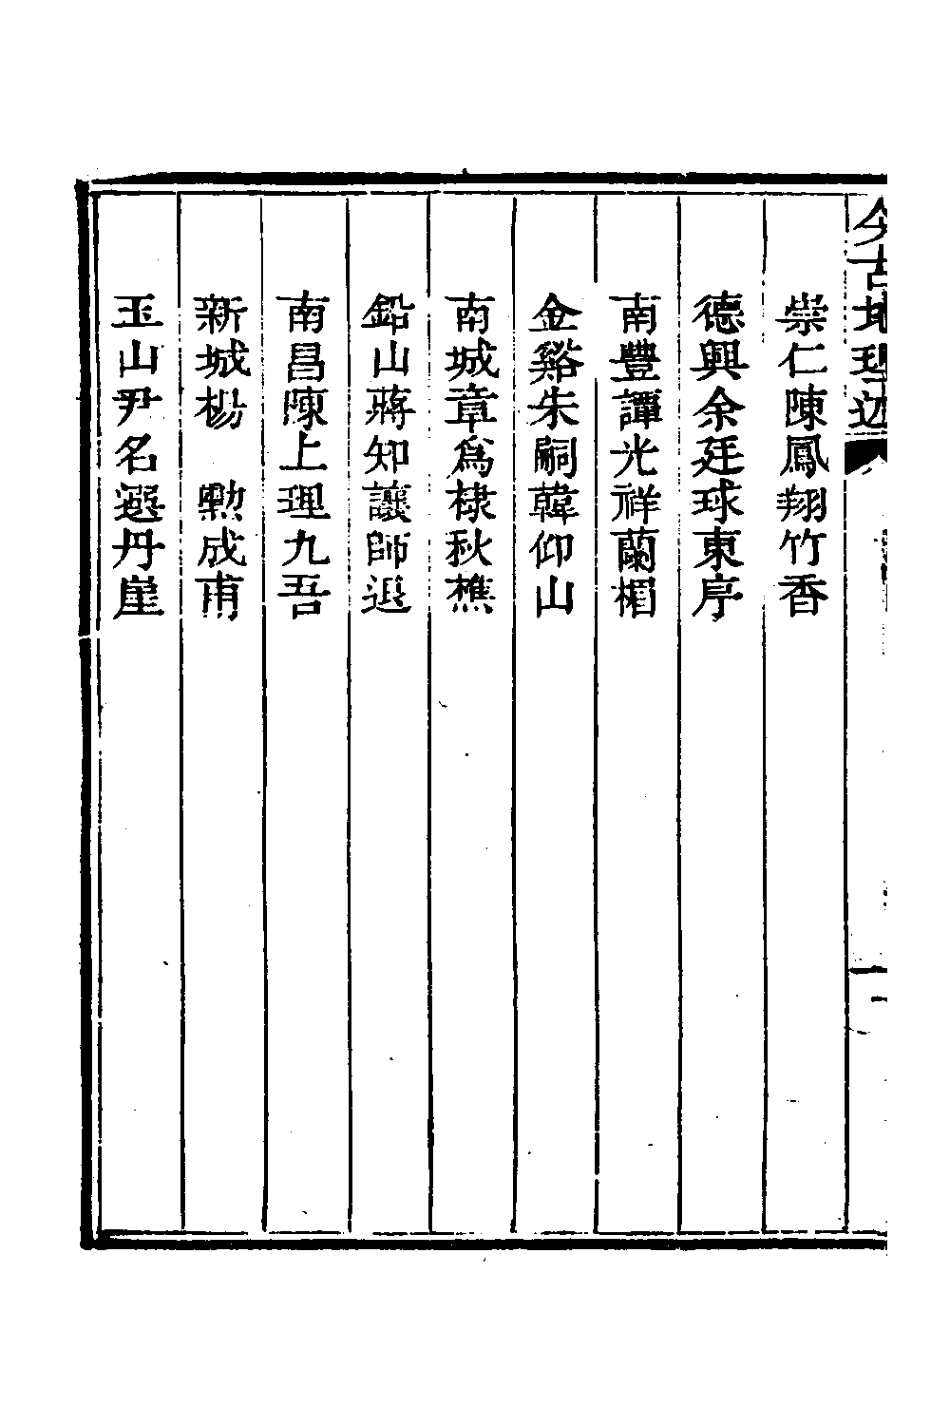 今古地理述
崇仁陳鳳翔竹香
德興余廷球東序
南豐譚光祥蘭楣
金谿朱嗣韓仰山
南城章爲棣秋樵
鉛山蔣知讓師退
南昌陳上理九吾
新城楊　勲成甫
玉山尹名選丹崖